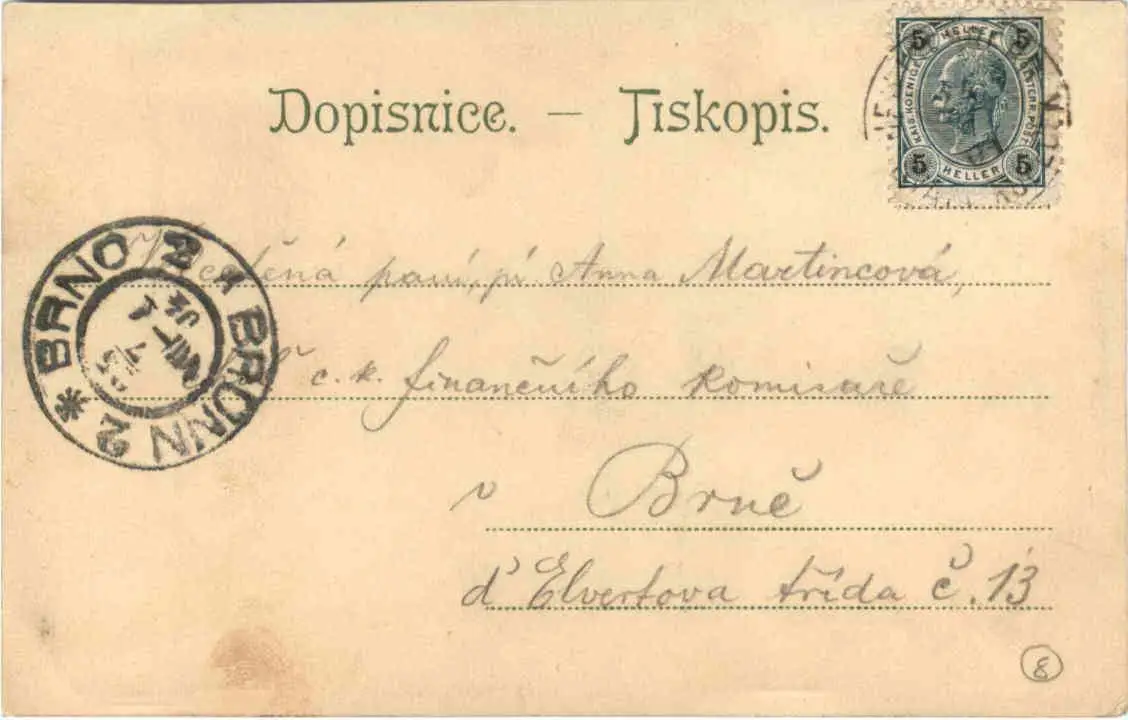 Dopisnice. — Tiskopis.
5 HELLER 5
KAIS. KOENIGL. OESTERR. POST.
5 HELLER 5
BRNO 2 * BRÜNN 2 *
paní, pí Anna Martincová,
c. k. finančního komisaře
v Brně
d'Elvertova třída č. 13
8